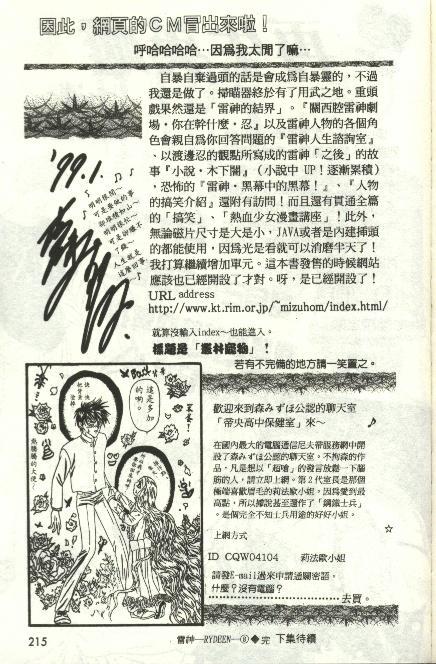 因此，網頁的ＣＭ冒出來啦！
呼哈哈哈哈…因為我太閒了嘛…
自暴自棄過頭的話是會成為自暴靈的，不過
我還是做了。掃瞄器終於有了用武之地。重頭
戲果然還是「雷神的結界」。『關西腔雷神劇
場‧你在幹什麼‧忍』以及雷神人物的各個角
色會親自為你回答問題的『雷神人生諮詢室』
、以渡邊忍的觀點所寫成的雷神「之後」的故
事『小說‧木下闇』（小說中 UP！逐漸累積）
，恐怖的『雷神‧黑幕中的黑幕！』、『人物
的搞笑介紹』還附有訪問！而且還有貫通全篇
的「搞笑」、「熱血少女漫畫講座」！此外，
無論磁片尺寸是大是小，JAVA或者是內建揷頭
的都能使用，因為光是看就可以消磨半天了！
我打算繼續增加單元。這本書發售的時候網站
應該也已經開設了才對。呀，是已經開設了！
URL address
http://www.kt.rim.or.jp/~mizuhom/index.html/
就算沒輸入index～也能進入。
標題是「叢林寵物」！
若有不完備的地方請一笑置之。
'99.1.
人生就是
這麼回事
這是多加
的喲。
熱騰騰的天使
歡迎來到森みずほ公認的聊天室
「帝央高中保健室」來～
在國內最大的電腦通信尼夫帝服務網中開
設了森みずほ公認的聊天室。不拘森的作
品，凡是想以「超嗆」的發言放鬆一下腦
筋的人，請立即上網。第２代室長是那個
極端喜歡眉毛的莉法歐小姐，因為愛到最
高點，所以據說甚至還作了「鋼鐵士兵」
。是個完全不知士兵用途的好好小姐。
☆
上網方式
ID CQW04104 莉法歐小姐
請發E-mail過來申請通關密語。
什麼？沒有電腦？
去買。
215
雷神—RYDEEN—⑧◆完 下集待續